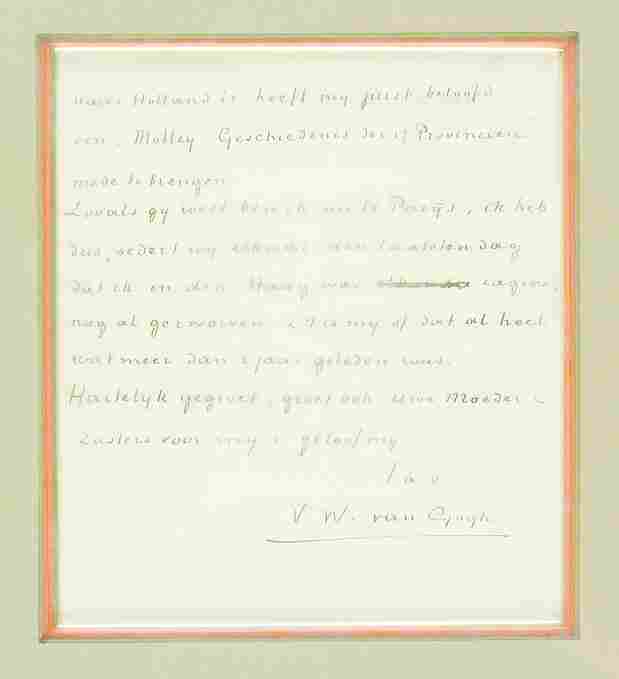 naar Holland is heeft my juist beloofd
een Motley Geschiedenis der 17 Provincien
mede te brengen
Zooals gy weet ben ik nu te Parys, ik heb
dus, sedert wy elkander den laatsten dag
dat ik in den Haag was zagen,
nog al gezworven & 't is my of dat al heel
wat meer dan 1 jaar geleden was.
Hartelyk gegroet, groet ook uwe Moeder &
Zusters voor my & geloof my
t. a. v.
V. W. van Gogh